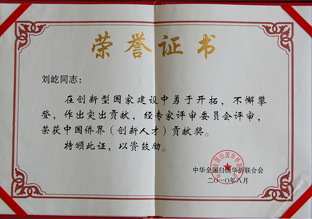 荣誉证书
刘屹同志：
在创新型国家建设中勇于开拓，不懈攀
登，作出突出贡献，经专家评审委员会评审，
荣获中国侨界（创新人才）贡献奖。
特颁此证，以资鼓励。
中华全国归国华侨联合会
二〇一〇年八月